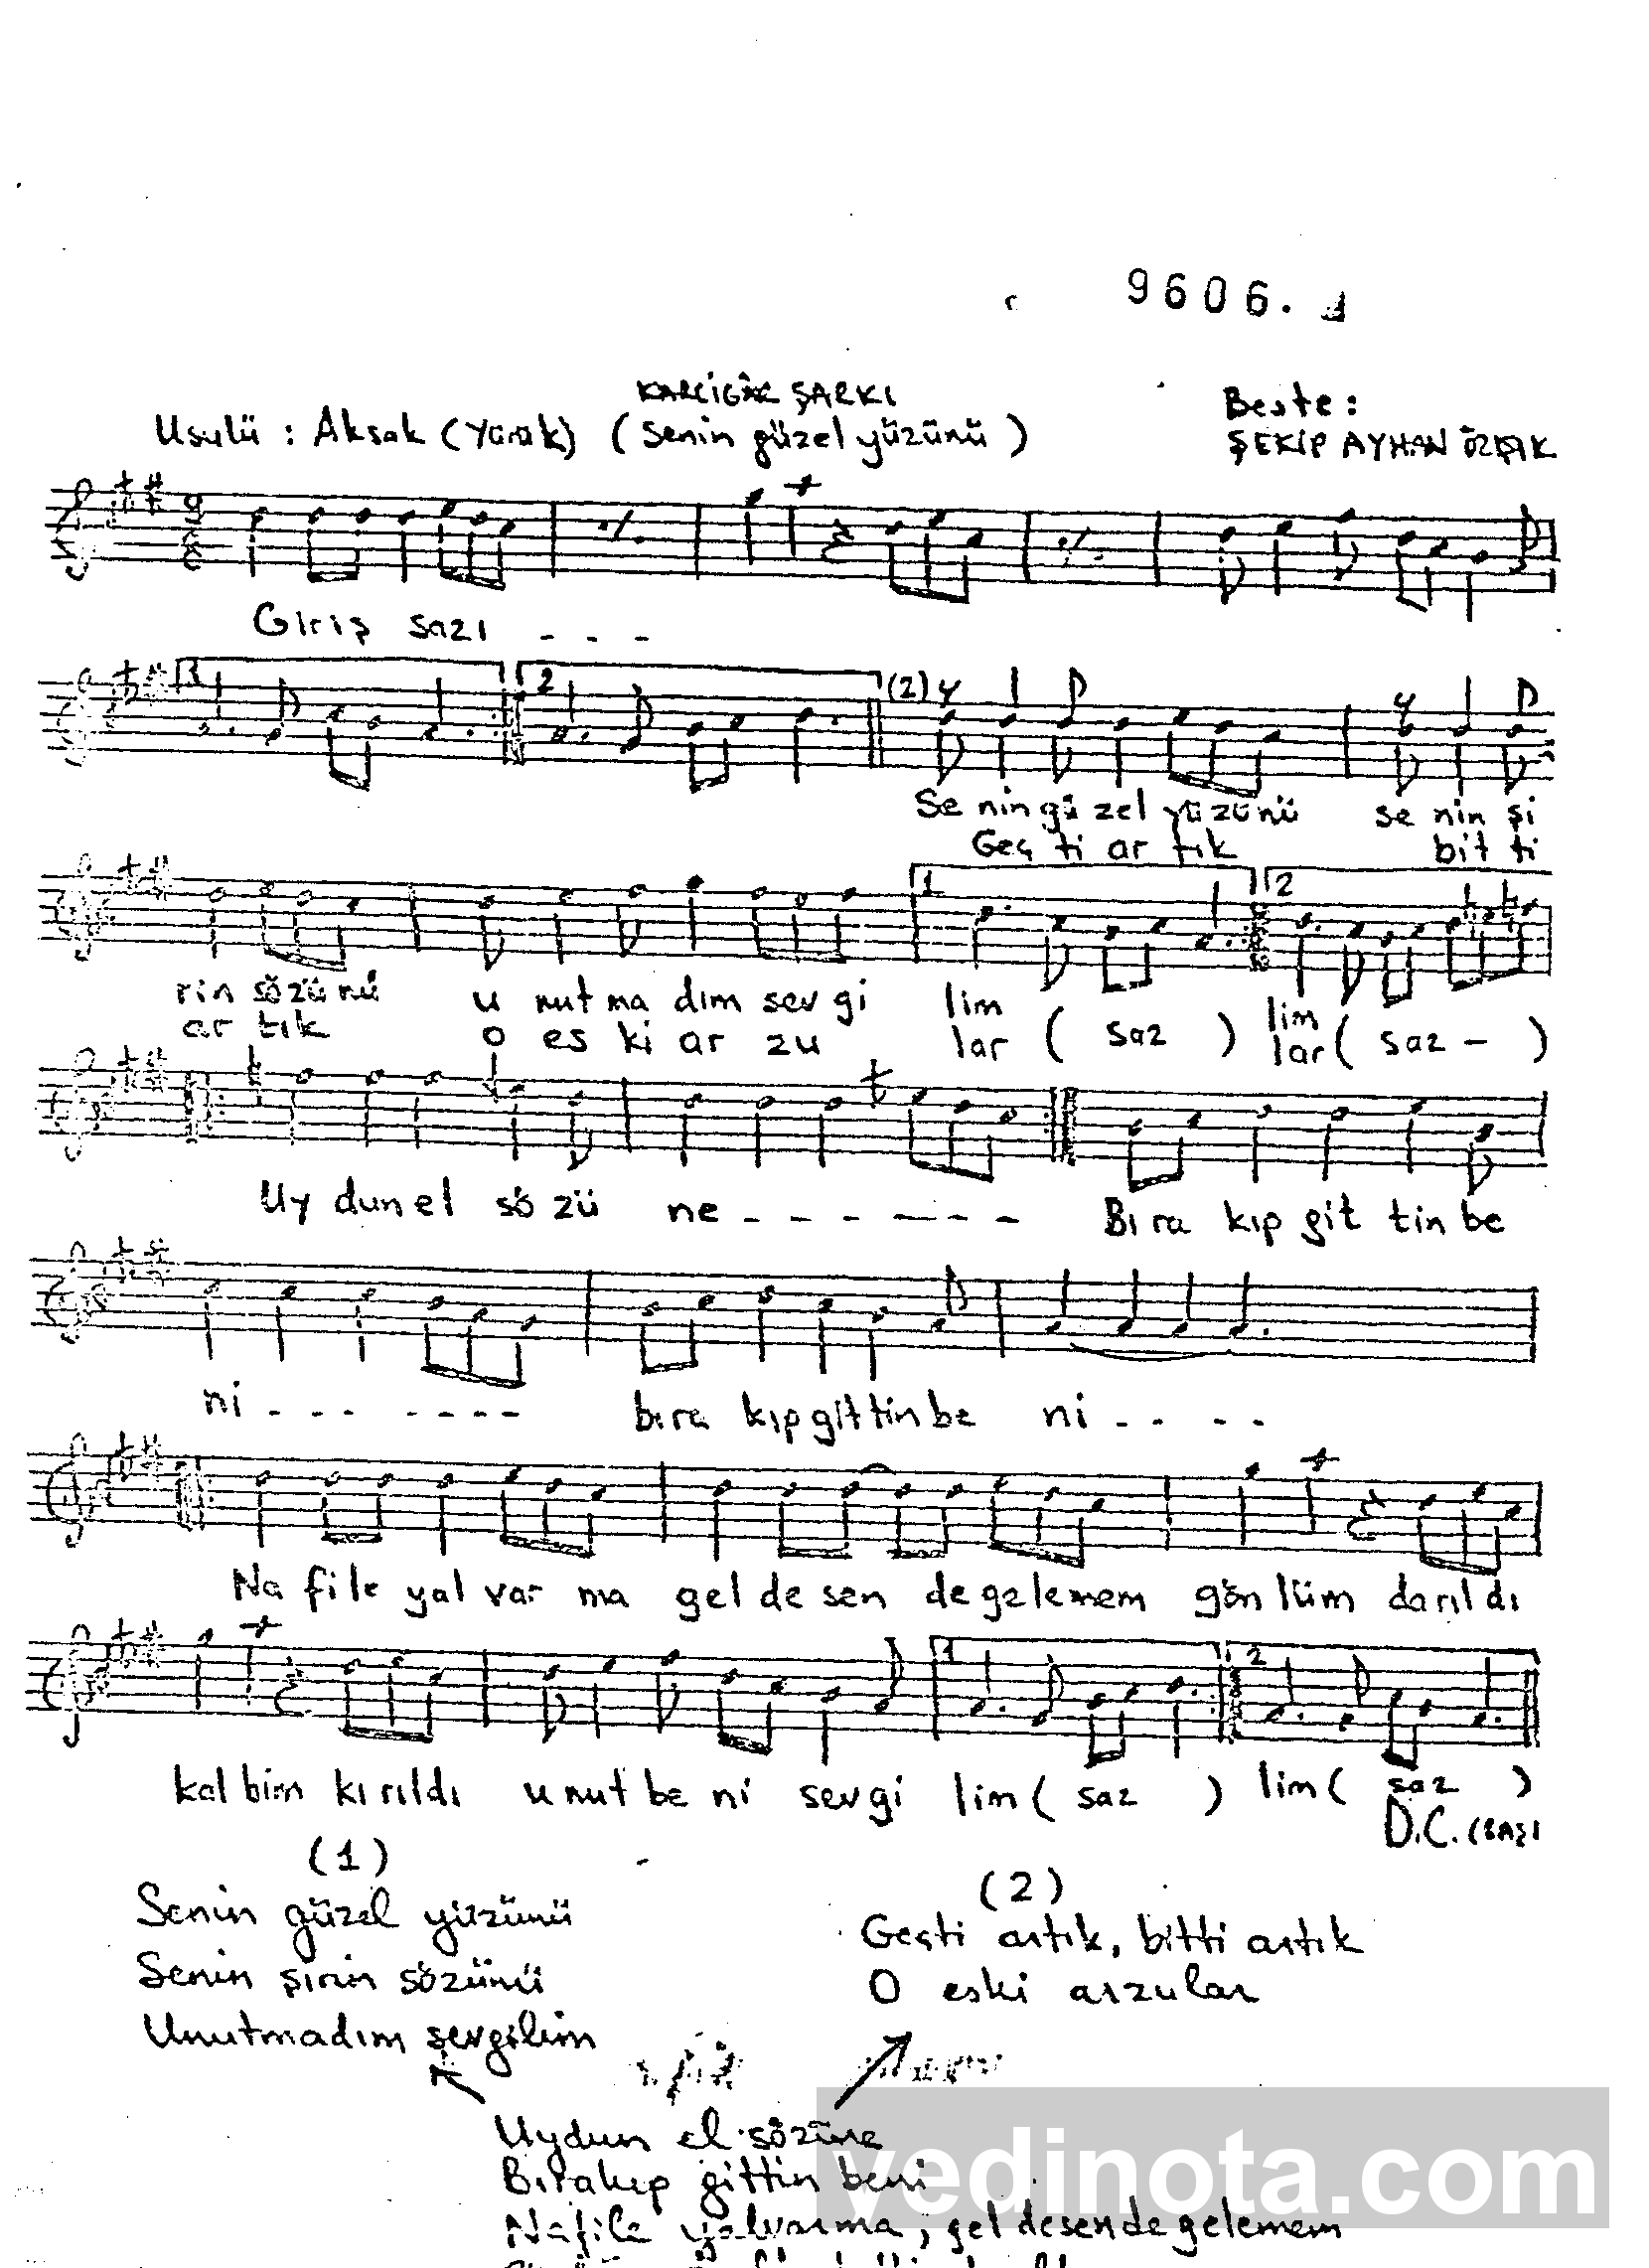 9606.
KARCİGÂR ŞARKI
Usulü : Aksak (Yürük) (Senin güzel yüzünü)
Beste :
ŞEKİP AYHAN ÖZIŞIK
9
8
Giriş sazı - - -
1 2 (2)
Se nin gü zel yü zü nü se nin şi
Geç ti ar tık bit ti
1 2
rin sözünü u nut ma dım sev gi lim ( saz ) lim
ar tık o es ki ar zu lar lar ( saz - )
Uy dun el sö zü ne - - - - - - Bı ra kıp git tin be
ni - - - - - - - bıra kıp git tin be ni - - - -
Na file yal var ma gel de sen de gelemem gön lüm darıl dı
1 2
kal bim kı rıldı u nut be ni sev gi lim ( saz ) lim ( saz )
D.C. (BAŞI
(1)
Senin güzel yüzünü
Senin şirin sözünü
Unutmadım sevgilim
(2)
Geçti artık, bitti artık
O eski arzular
Uydun el sözüne
Bırakıp gittin beni
Nafile yalvarma, gel desende gelemem
yedinota.com